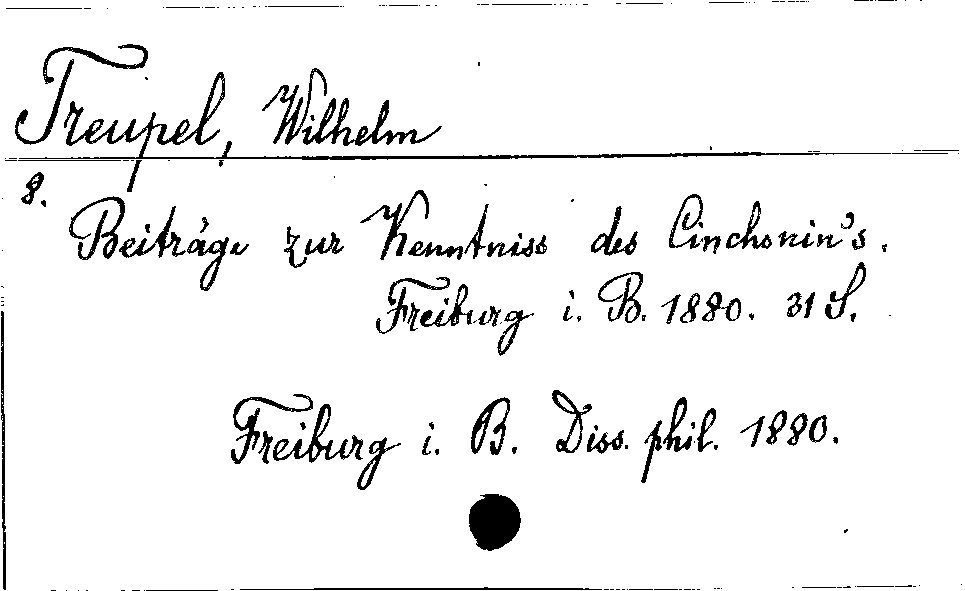 Treupel, Wilhelm
8.
Beiträge zur Kenntniss des Cinchonin's.
Freiburg i. B. 1880. 31 S.
Freiburg i. B. Diss. phil. 1880.